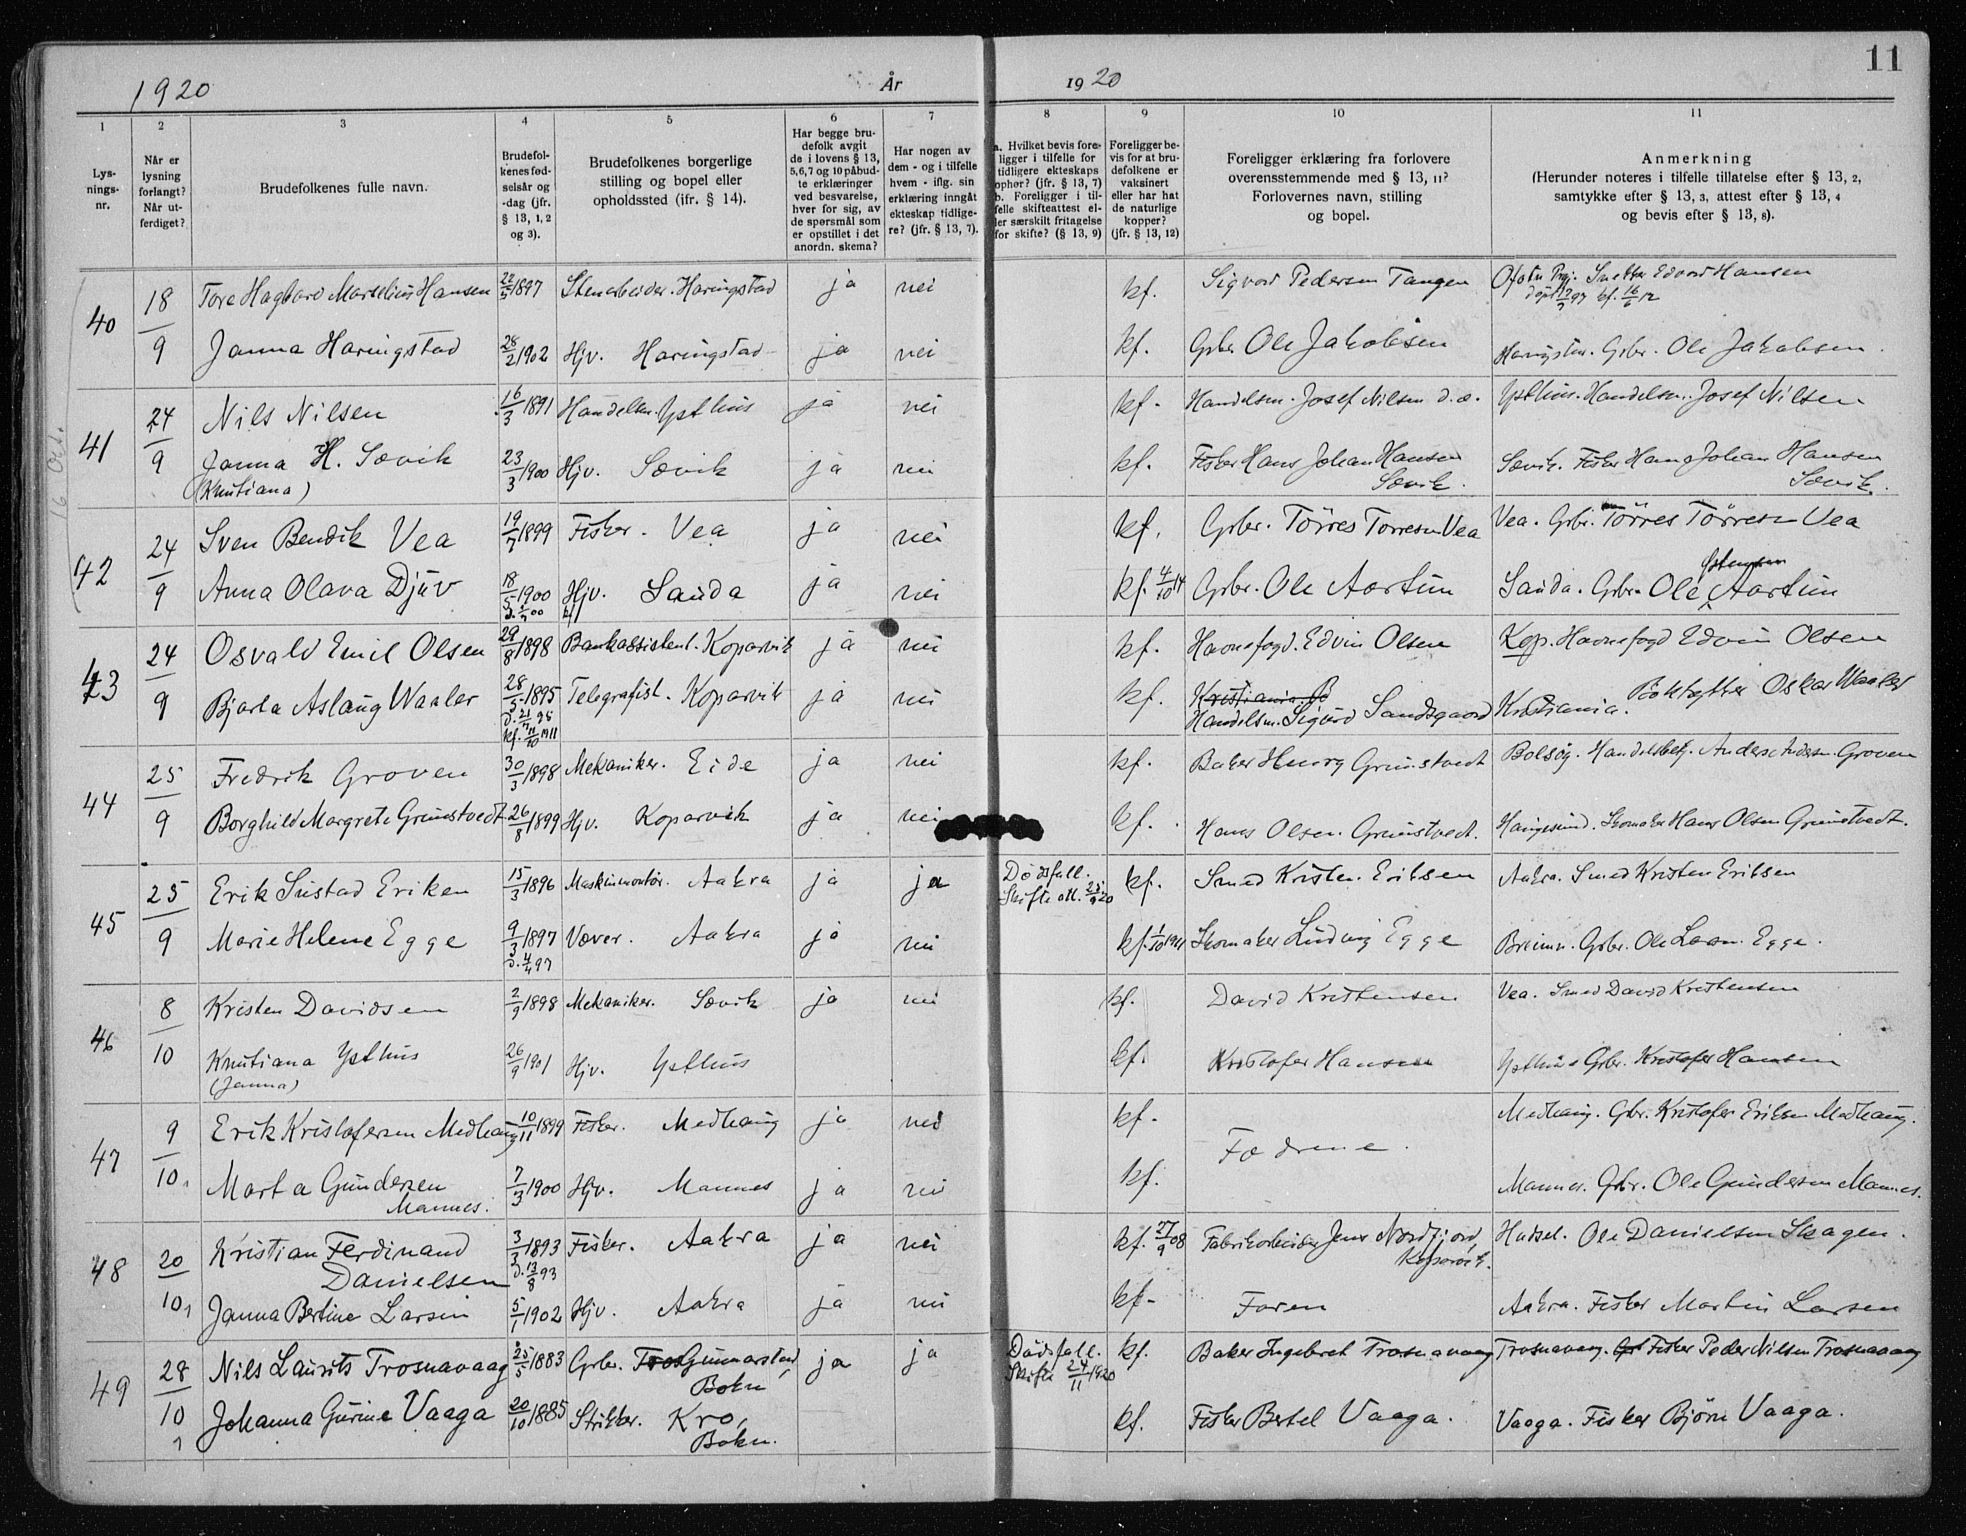 11
1920 År 1920
1 2 3 4 5 6 7 8 9 10 11
Lysningsnr.
Når er lysning forlangt? Når utferdiget?
Brudefolkenes fulle navn.
Brudefolkenes fødselsår og -dag (jfr. § 13, 1, 2 og 3).
Brudefolkenes borgerlige stilling og bopel eller opholdssted (ifr. § 14).
Har begge brudefolk avgit de i lovens § 13, 5,6,7 og 10 påbudte erklæringer ved besvarelse, hver for sig, av de spørsmål som er opstillet i det anordn. skema?
Har nogen av dem - og i tilfelle hvem - iflg. sin erklæring inngåt ekteskap tidligere? (jfr. § 13, 7).
a. Hvilket bevis foreligger i tilfelle for tidligere ekteskaps ophør? (jfr. § 13, 7) b. Foreligger i tilfelle skifteattest eller særskilt fritagelse for skifte? (§ 13, 9)
Foreligger bevis for at brudefolkene er vaksinert eller har hat de naturlige kopper? (jfr. § 13, 12)
Foreligger erklæring fra forlovere overensstemmende med § 13, 11? Forlovernes navn, stilling og bopel.
Anmerkning (Herunder noteres i tilfelle tillatelse efter § 13, 2, samtykke efter § 13, 3, attest efter § 13, 4 og bevis efter § 13, 8).
16 Oct.
40 18/9 Tore Hagbard Marselius Hansen 22/5 1897 Stenarbeider. Haringstad ja nei kf. Sigvard Pedersen Tangen Edvard Hansen
kf. 16/6 12
Janna Haringstad 28/2 1902 Hjv. Haringstad ja nei kf. Grbr. Ole Jakobsen Grbr. Ole Jakobsen.
41 24/9 Nils Nilsen 16/3 1891 Ysthus ja nei kf. Handelsm. Josef Nilsen Ysthus. Handelsm. Josef Nilsen
Janna H. Sævik 23/3 1900 Hjv. Sævik ja nei kf. Fisker Hans Johan Hansen Sævik. Fisker Hans Johan Hansen
(Knutiana) Sævik. Sævik.
42 24/9 Sven Bendik Vea 19/7 1899 Fisker. Vea ja nei kf. Grbr. Tørres Torresen Vea Vea. Grbr. Tørres Tørresen Vea
Anna Olava Djuv 18/5 1900 Hjv. Sauda ja nei kf. 4/10 14 Grbr. Ole Aartun Sauda. Grbr. Ole Aartun
43 24/9 Osvald Emil Olsen 29/8 1898 Bankassistent. Koparvik ja nei kf. Havnefogd. Edvin Olsen Kop. Havnefogd Edvin Olsen
Bjarla Aslaug Waaler 28/5 1895 Telegrafist. Koparvik ja nei kf. Kristiania. B Kristiania. Oskar Waaler
d. 21/7 95 Handelsm. Sigurd Sandsgaard
kf. 11/10 1911
44 25/9 Fredrik Groven 30/3 1898 Mekaniker. Eide ja nei kf. Baker Henry Grimstvedt Bolsøy. Anders Groven
Borghild Margrete Grimstvedt 26/8 1899 Hjv. Koparvik ja nei kf. Hans Olsen Grimstvedt. Haugesund. Skomaker Hans Olsen Grimstvedt.
45 25/9 Erik Eriksen 15/3 1896 Maskinmontør. Aakra ja ja Dødsfall. kf. Smed Kristen Eriksen Aakra. Smed Kristen Eriksen
Skifte att. 25/9 20
Marie Helene Egge 9/3 1897 Væver. Aakra ja nei kf. Skomaker Ludvig Egge Grbr. Ole Egge.
d. 4/4 97
46 8/10 Kristen Davidsen 2/9 1898 Mekaniker. Sævik ja nei kf. David Kristensen Vea. Smed David Kristensen
Knutiana Ysthus 26/9 1901 Hjv. Ysthus kf. Kristofer Hansen Ysthus Grbr. Kristofer Hansen
(Janna)
47 9/10 Erik Kristofersen Medhaug 10/11 1899 Fisker. Medhaug ja nei kf. Fædrene. Medhaug. Grbr. Kristofer Eriksen Medhaug.
Marta Gundersen 7/3 1900 Hjv. Mannes ja nei kf. Mannes. Grbr. Ole Gundersen Mannes.
Mannes.
48 20/10 Kristian Ferdinand 3/7 1893 Fisker. Aakra ja nei kf. 27/9 08 Fabrikarbeider Jens Nordfjord, Hadsel. Ole Danielsen Skagen.
Danielsen d. 13/8 93 Koparvik.
Janna Bertine Larsen 5/1 1902 Hjv. Aakra ja nei kf. Faren Aakra. Fisker Martin Larsen
49 28/10 Nils Laurits Trosnavaag 25/5 1883 Grbr. Tros Gunnarstad, ja ja Dødsfall. kf. Baker Ingebret Trosnavaag Trosnavaag. Fisker Peder Nilsen Trosnavaag
Bokn Skifte 24/11 1920
Johanna Gurine Vaaga 20/10 1885 Strikker. Kro, kf. Fisker Bertel Vaaga. Vaaga. Fisker Bjørn Vaaga.
Bokn.